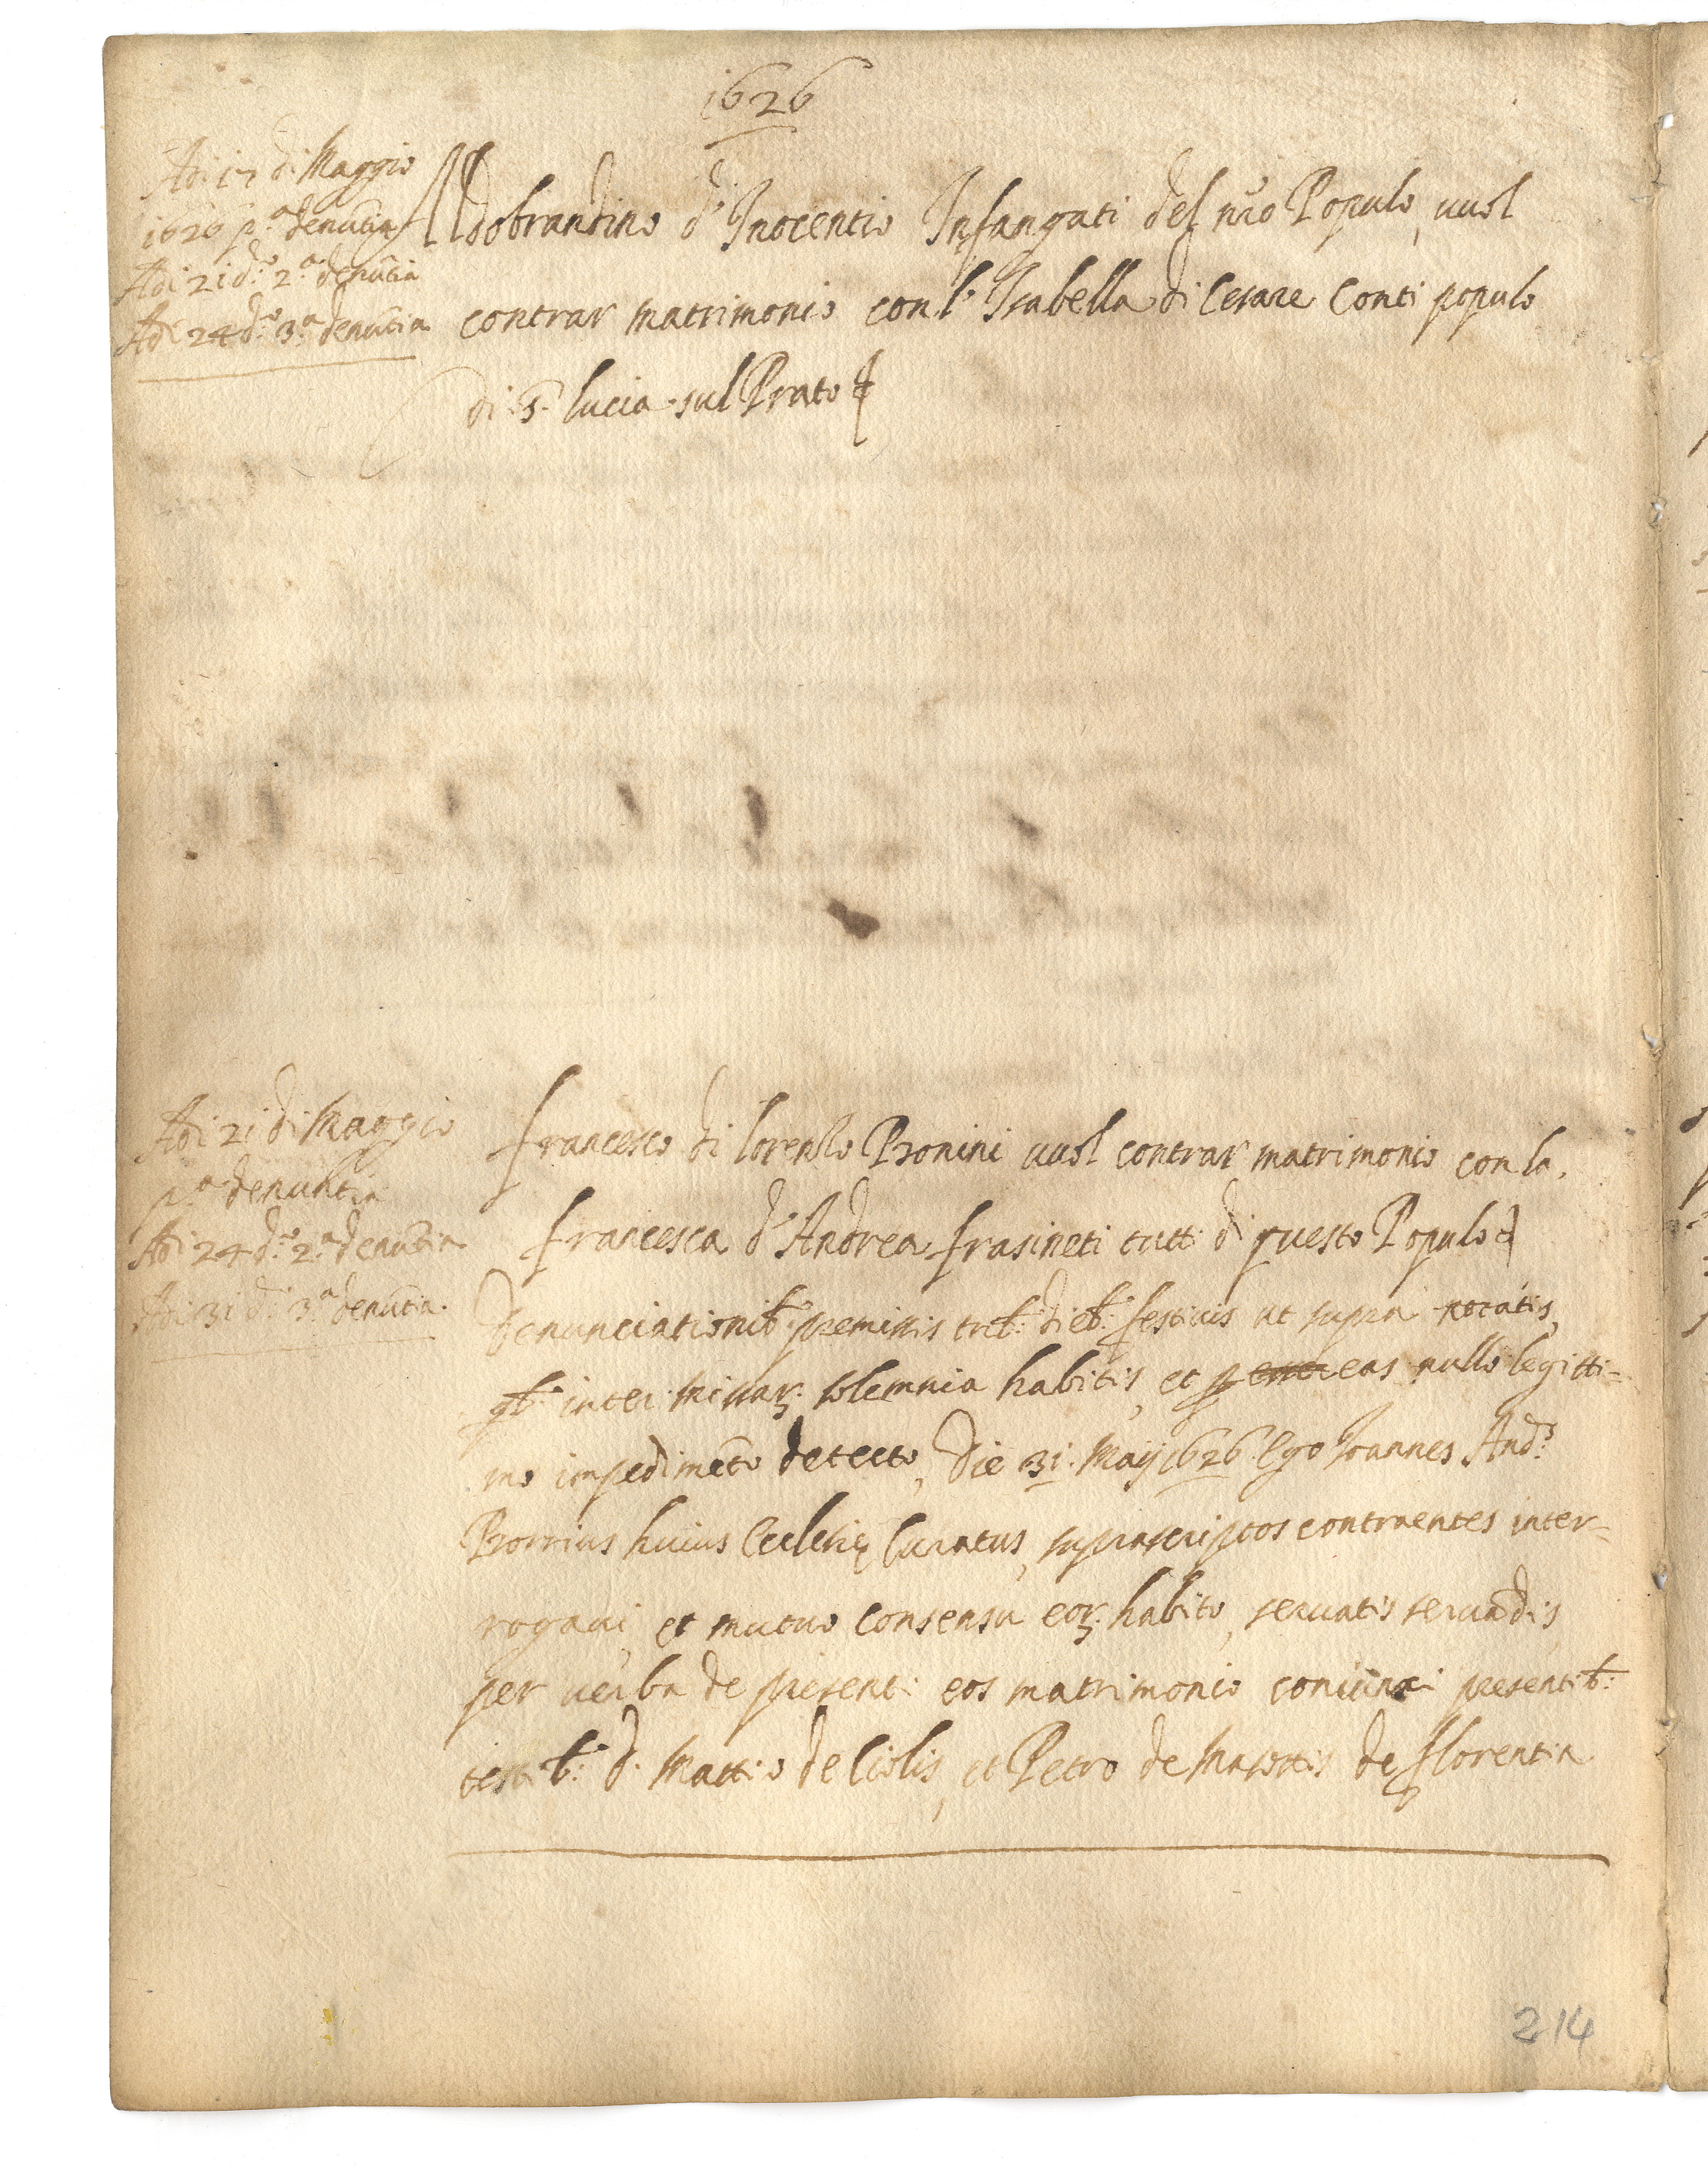 1626
Adi 17 di Maggio
1626 p.ª denũtia
Adi 21 d.º 2.ª denũtia
Adi 24 d.º 3.ª denũtia
Aldobrandino d'Inocentio Infangati del nr̃o Populo, vuol
contrar matrimonio con l' Isabella di Cesare Conti populo
di S. Lucia sul Prato
Adi 21 di Maggio
p.ª denuntia
Adi 24 d.º 2.ª denũtia
Adi 31 d.º 3.ª denũtia.
Francesco di Lorenzo Bonini vuol contrar matrimonio con la
Francesca d'Andrea Frasineti tutti di questo Populo
Denunciationib: premissis trib: dieb: festivis ut supra notatis,
qb: inter missar: solemnia habitis, et eas nullo legitti=
mo impedimẽto detecto, Die 31 Maij 1626 Ego Joannes And.s
Borrius huius Ecclesię Curatus, suprascriptos contraentes inter=
rogavi, et mutuo consensu eor: habito, servatis servãdis,
per verba de presenti eos matrimonio coniunxi presentib:
testib: d. Mattio de Ciolis, et Petro de de Florentia
214